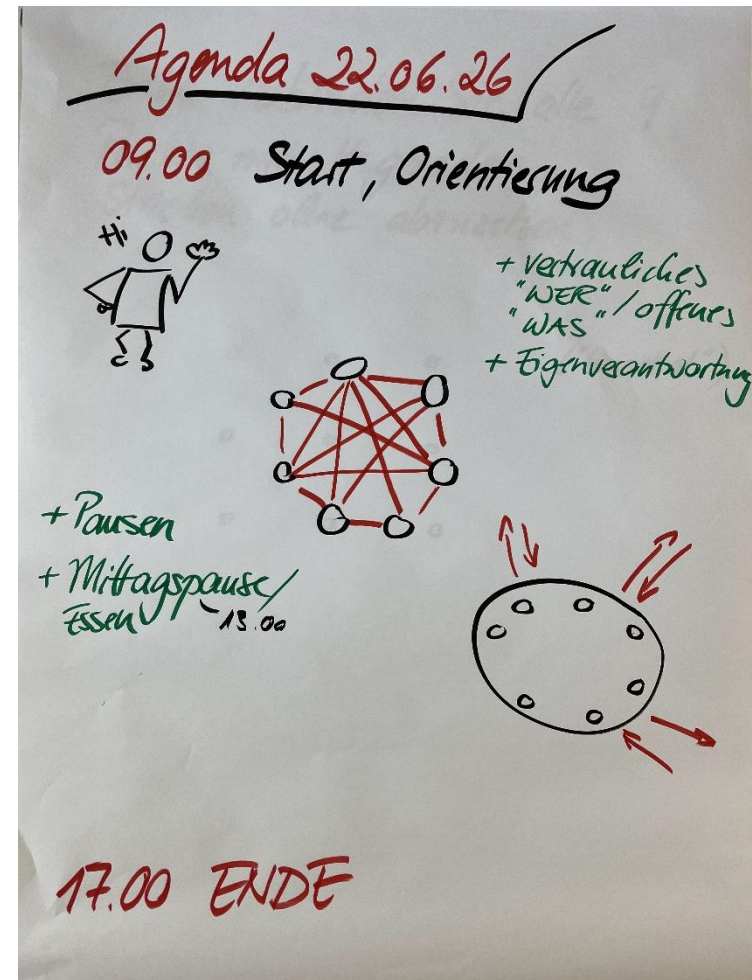 Agenda 22.06.26
09.00 Start, Orientierung
Hi
+ vertrauliches
"WER" / offenes
"WAS"
+ Eigenverantwortung
+ Pausen
+ Mittagspause/
Essen ~ 13.00
17.00 ENDE